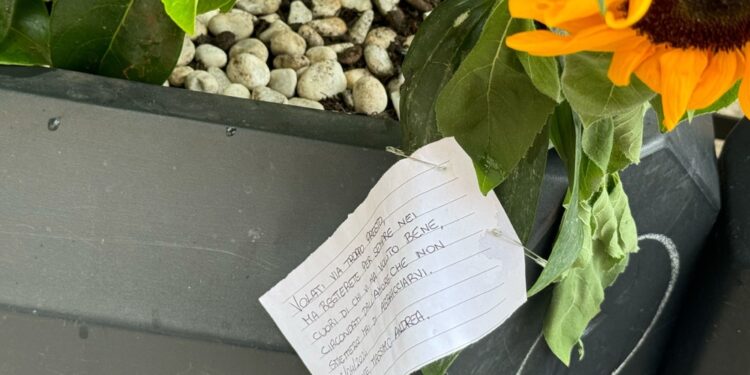 VOLATI VIA TROPPO PRESTO,
MA RESTERETE PER SEMPRE NEI
CUORI DI CHI VI HA VOLUTO BENE.
CIRCONDATI DALL'AMORE CHE NON
SMETTERÀ MAI DI ABBRACCIARVI.
TASSIMO ANDREA.